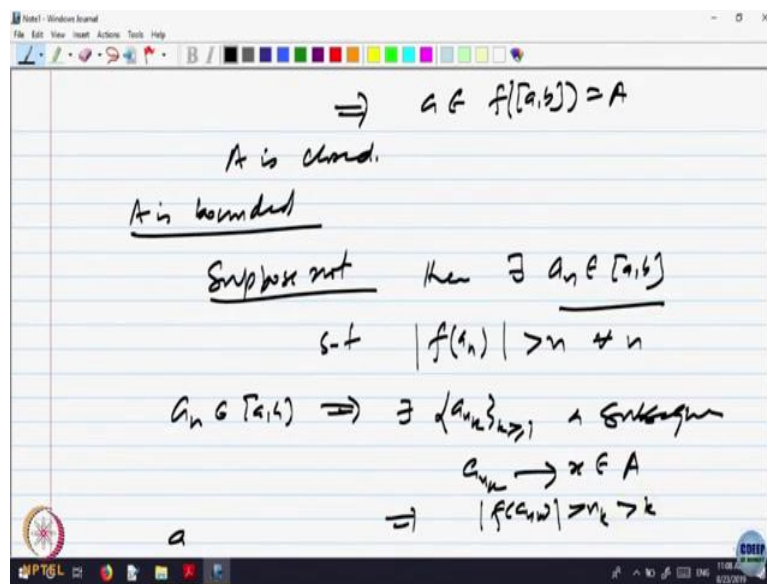 Note1 - Windows Journal
File Edit View Insert Actions Tools Help
⇒ a ∈ f([a,b]) = A
A is closed.
A is bounded
Suppose not then ∃ a_n ∈ [a,b]
s.t |f(a_n)| > n ∀ n
a_n ∈ [a,b] ⇒ ∃ {a_{n_k}}_{k≥1} a subsequence
a_{n_k} → x ∈ A
⇒ |f(a_{n_k})| > n_k > k
a
NPTEL
CDEEP
ENG
8/23/2019